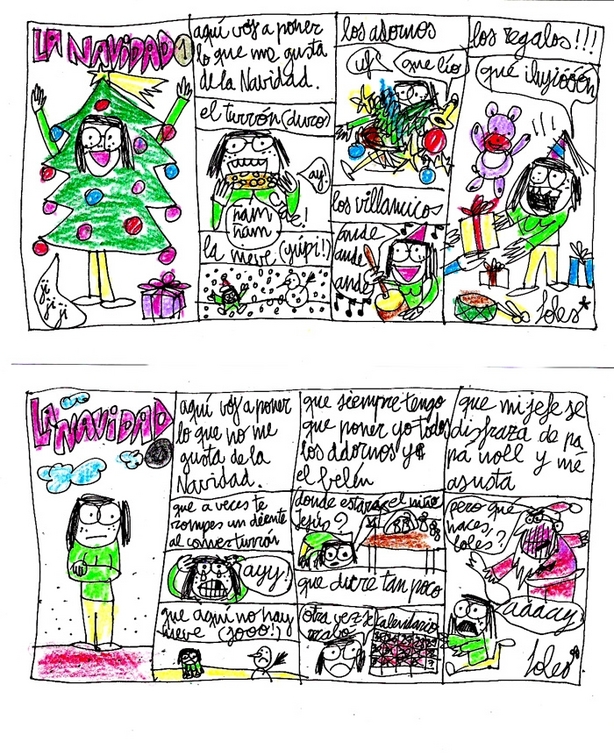 LA NAVIDAD 1
ji
ji
ji
aquí voy a poner
lo que me gusta
de la Navidad.
el turrón (duro)
¡ay!
ñam
ñam
la nieve (¡yupi!)
los adornos
uf!
que lío
los villancicos
ande
ande
ande
los regalos!!!
qué ilusióóón
Loles*
LA
NAVIDAD
aquí voy a poner
lo que no me
gusta de la
Navidad.
que a veces te
rompes un diente
al comer turrón
ayy!
que aquí no hay
nieve (¡jooo!)
que siempre tengo
que poner yo todos
los adornos y
el belén
donde estará el niño
Jesús?
que dure tan poco
otra vez se
acabó
calendario
que mi jefe se
disfraza de pa
pá noel y me
asusta
pero qué
haces,
Loles?
aaaay
Loles*